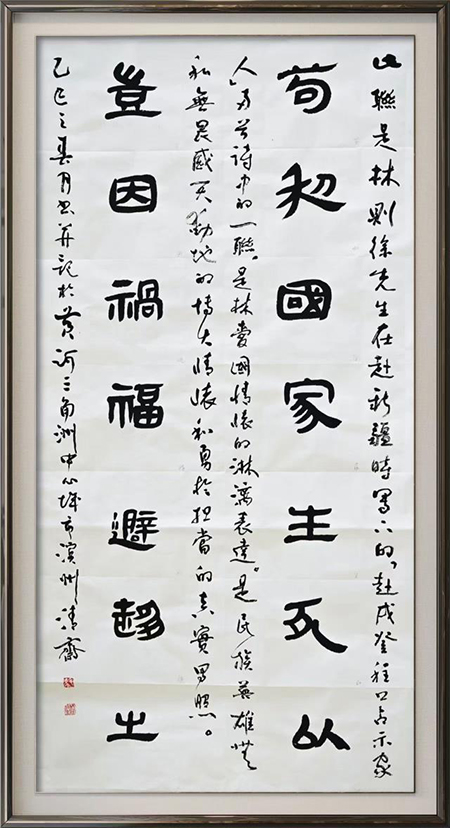 此聯是林則徐先生在赴新疆時寫下的，赴戍登程口占示家
苟利國家生死以
人」首詩中的一聯。是林愛國情懷的淋漓表達。是民族英雄無
私無畏感天動地的博大情懷和勇於担當的真實寫照。
豈因禍福避趨之
乙巳之春月書并記於黃河三角洲中心城市濱州齋